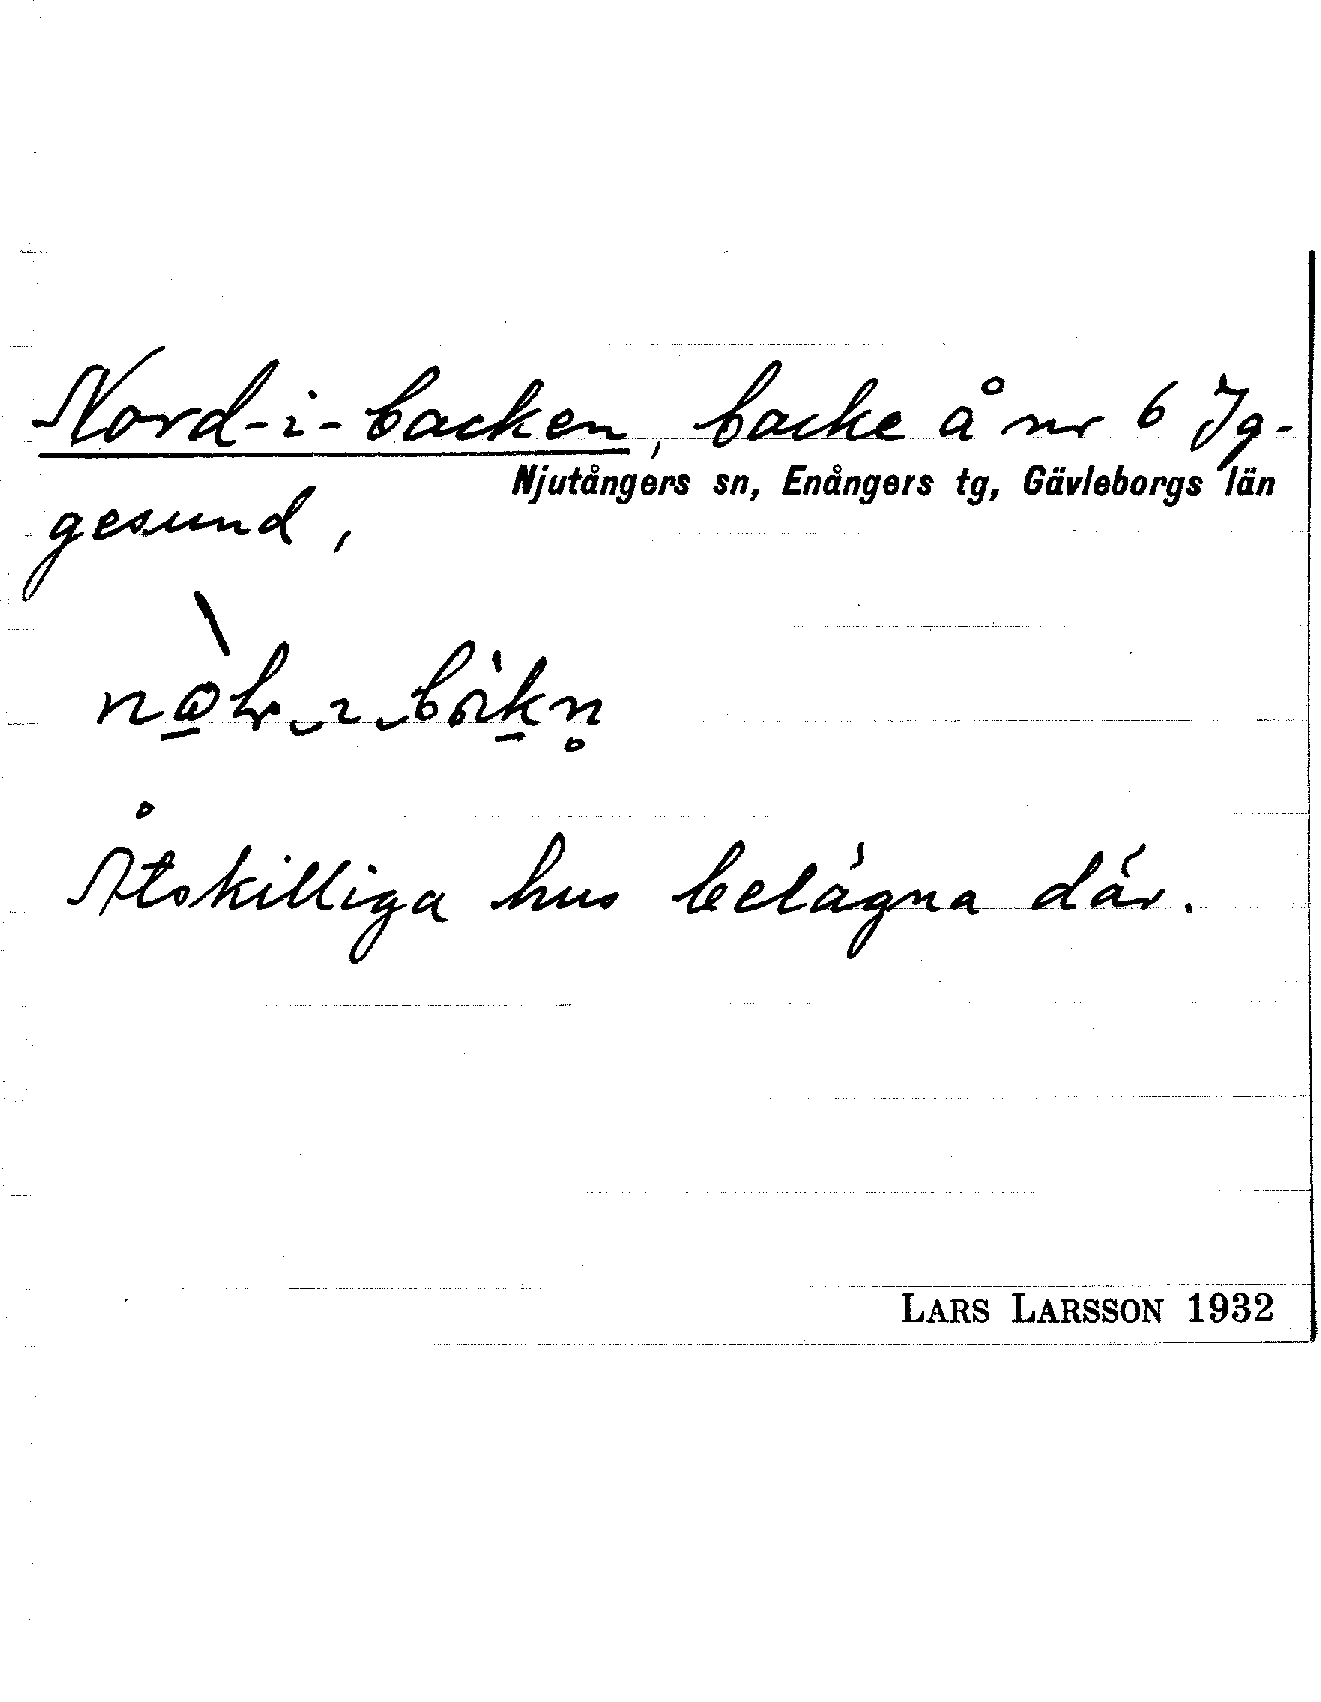 Nord-i-backen, backe å nr 6 Ig-
Njutångers sn, Enångers tg, Gävleborgs län
gesund,
Åtskilliga hus belägna där.
LARS LARSSON 1932